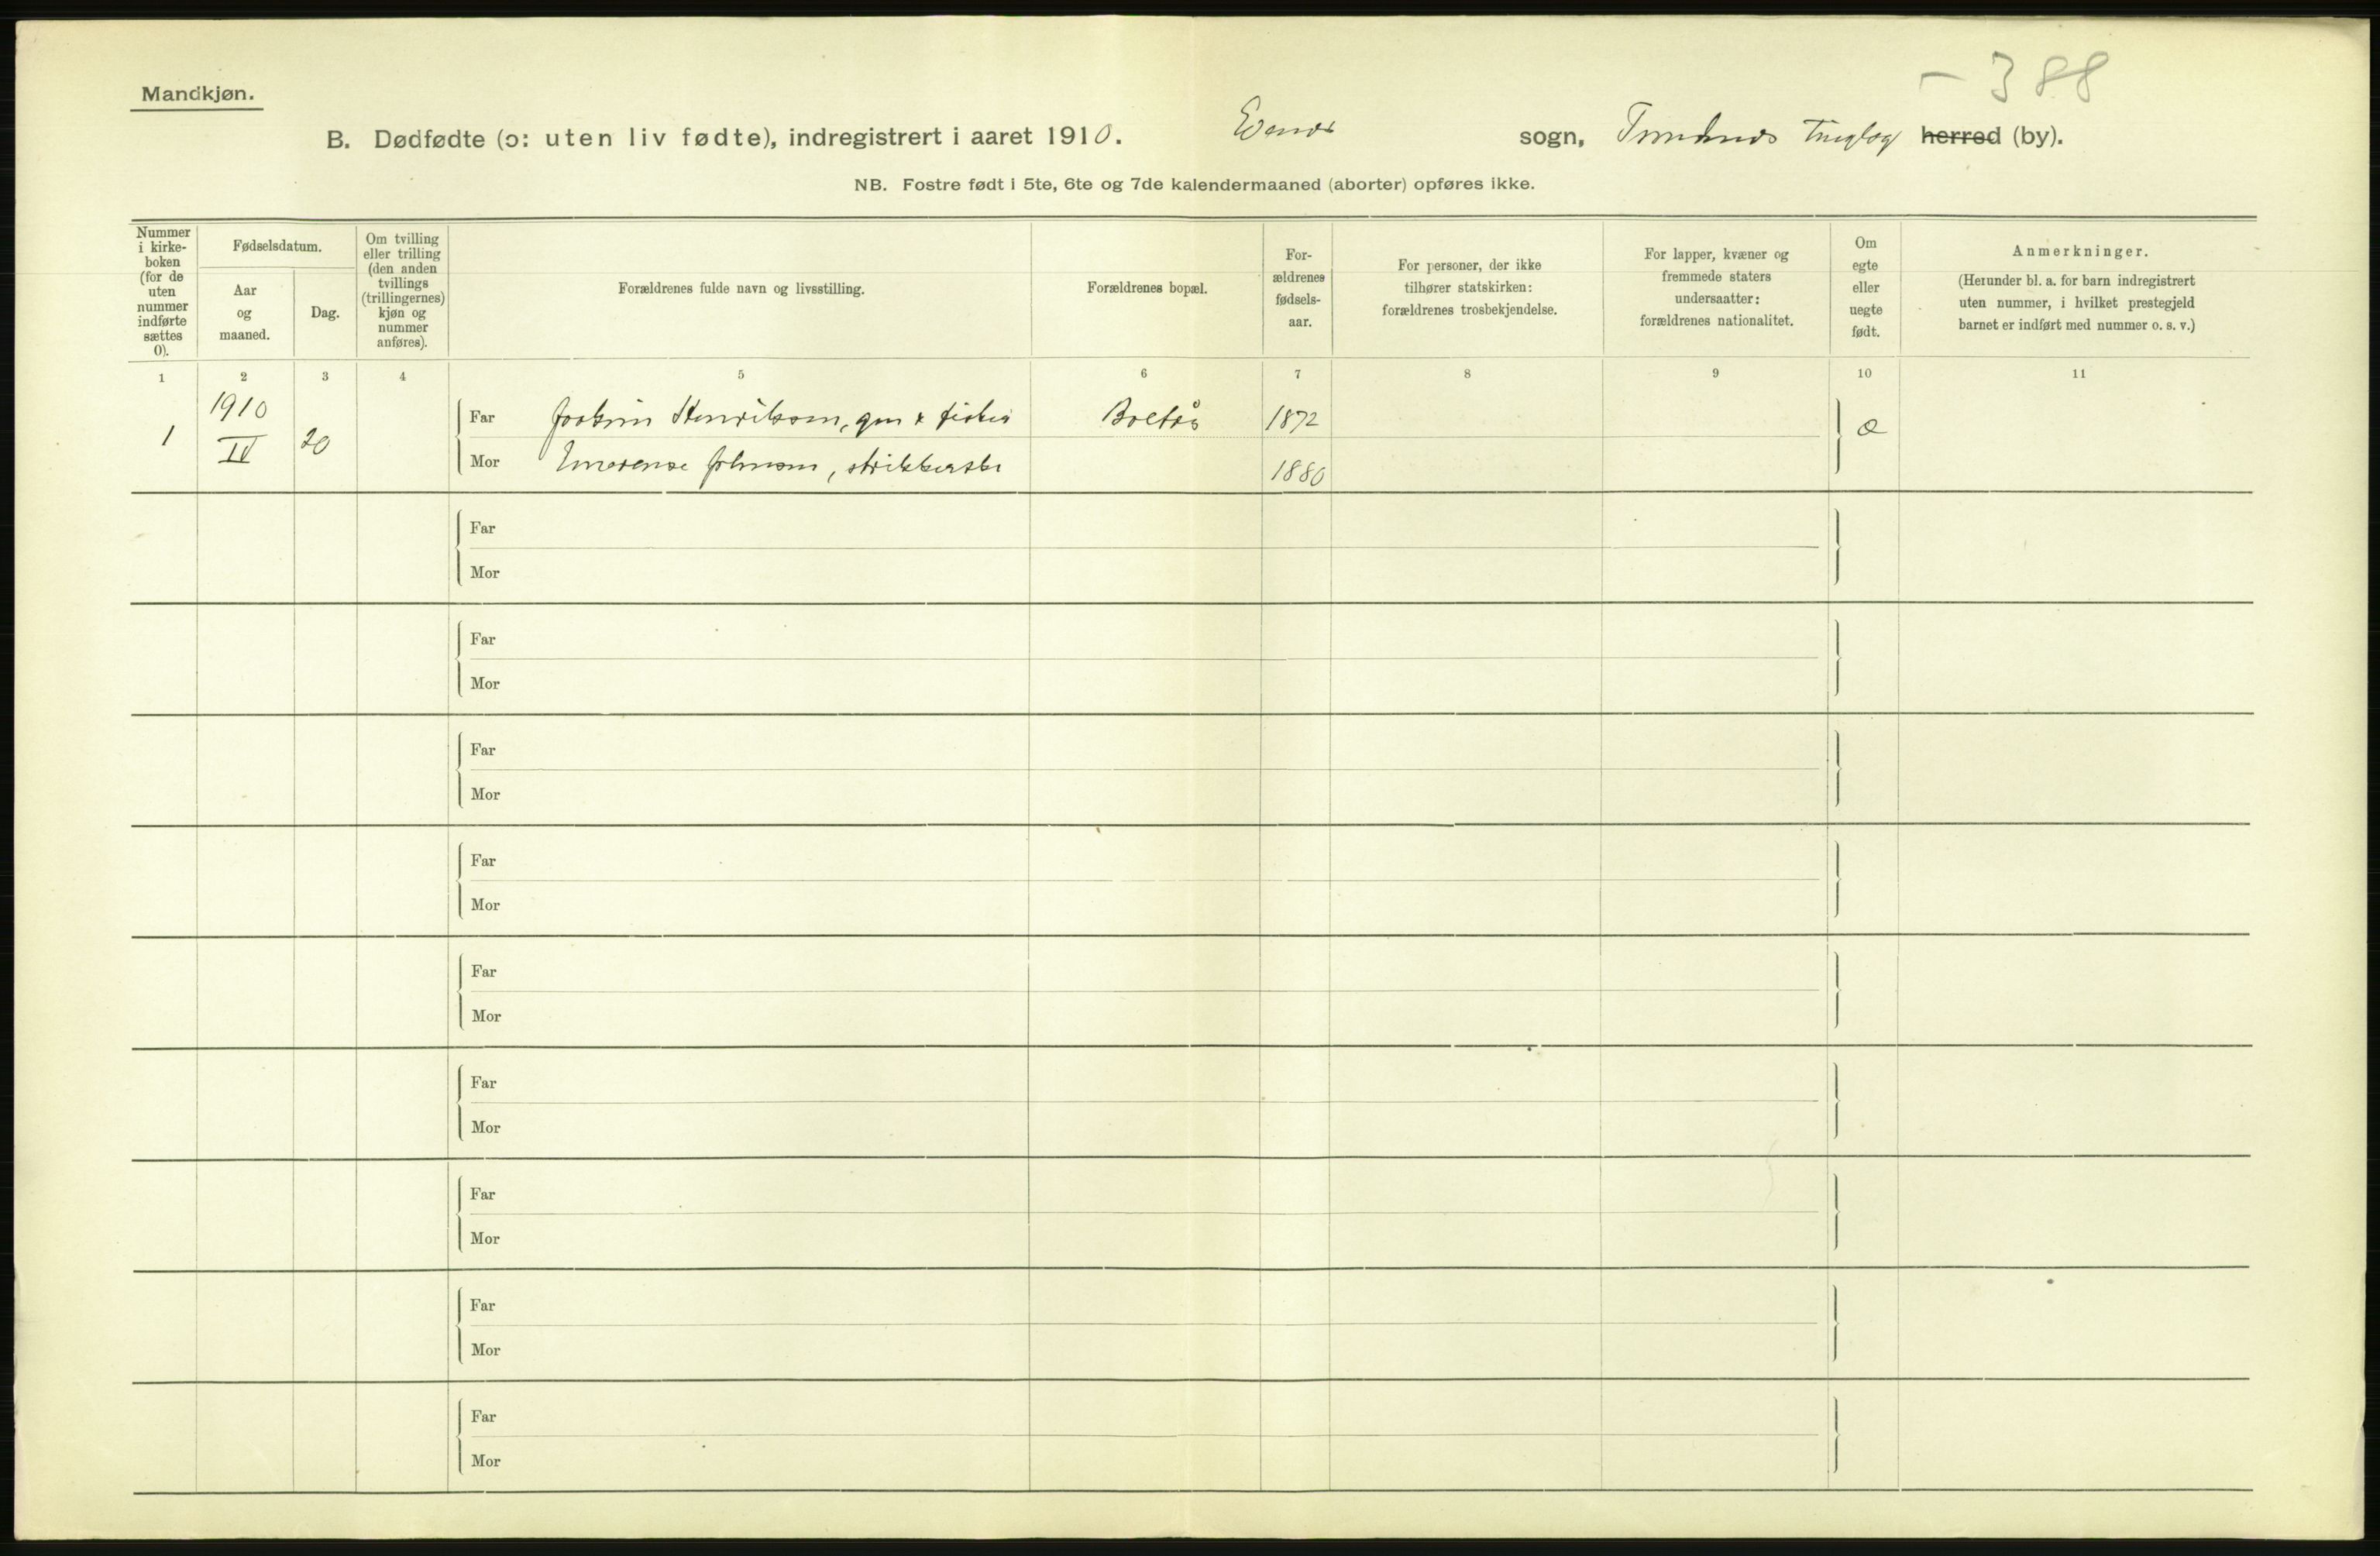 - 388
Mandkjøn.
B. Dødfødte (ɔ: uten liv fødte), indregistrert i aaret 1910. Evenes sogn, Trondenes tinglag herred (by).
NB. Fostre født i 5te, 6te og 7de kalendermaaned (aborter) opføres ikke.
Nummer
i kirke-
boken
(for de
uten
nummer
indførte
sættes
0).
Fødselsdatum.
Aar
og
maaned.
Dag.
Om tvilling
eller trilling
(den anden
tvillings
(trillingernes)
kjøn og
nummer
anføres).
Forældrenes fulde navn og livsstilling.
Forældrenes bopæl.
For-
ældrenes
fødsels-
aar.
For personer, der ikke
tilhører statskirken:
forældrenes trosbekjendelse.
For lapper, kvæner og
fremmede staters
undersaatter:
forældrenes nationalitet.
Om
egte
eller
uegte
født.
Anmerkninger.
(Herunder bl. a. for barn indregistrert
uten nummer, i hvilket prestegjeld
barnet er indført med nummer o. s. v.)
1 2 3 4 5 6 7 8 9 10 11
1910
Far Joakim Henriksen, gm & fisker Boltås 1872
1 IV 20 æ
Mor Johnsen, strikkerske 1880
Far
Mor
Far
Mor
Far
Mor
Far
Mor
Far
Mor
Far
Mor
Far
Mor
Far
Mor
Far
Mor